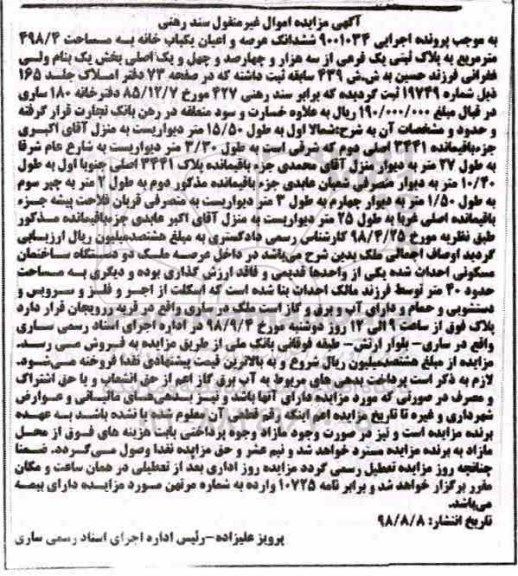 آگهی مزایده اموال غیرمنقول سند رهنی
به موجب پرونده اجرایی ۹۰۰۱۰۳۴ ششدانگ عرصه و اعیان یکباب خانه به مساحت ۴۹۸/۴
مترمربع به پلاک ثبتی یک فرعی از سه هزار و چهارصد و چهل و یک اصلی بخش یک بنام ولی
غفرانی فرزند حسین به ش.ش ۴۳۹ سابقه ثبت داشته که در صفحه ۷۳ دفتر املاک جلد ۱۶۵
ذیل شماره ۱۹۷۴۹ ثبت گردیده که برابر سند رهنی ۴۲۷ مورخ ۸۵/۱۲/۷ دفترخانه ۱۸۰ ساری
در قبال مبلغ ۱۹۰/۰۰۰/۰۰۰ ریال به علاوه خسارت و سود متعلقه در رهن بانک تجارت قرار گرفته
و حدود و مشخصات آن به شرح:شمالا اول به طول ۱۵/۵۰ متر دیواریست به منزل آقای اکبری
جزءباقیمانده ۳۴۴۱ اصلی دوم که شرقی است به طول ۳/۳۰ متر دیواریست به شارع عام شرقا
به طول ۲۷ متر به دیوار منزل آقای محمدی جزء باقیمانده پلاک ۳۴۴۱ اصلی جنوبا اول به طول
۱۰/۴۰ متر به دیوار متصرفی شعبان عابدی جزء باقیمانده مذکور دوم به طول ۲ متر به چپر سوم
به طول ۱/۵۰ متر به دیوار چهارم به طول ۳ متر دیواریست به متصرفی قربان فلاحت پیشه جزء
باقیمانده اصلی غربا به طول ۲۵ متر دیواریست به منزل آقای اکبر عابدی جزءباقیمانده مذکور
طبق نظریه مورخ ۹۸/۴/۲۵ کارشناس رسمی دادگستری به مبلغ هشتصدمیلیون ریال ارزیابی
گردید اوصاف اجمالی ملک بدین شرح می‌باشد در داخل عرصه ملک دو دستگاه ساختمان
مسکونی احداث شده یکی از واحدها قدیمی و فاقد ارزش گذاری بوده و دیگری به مساحت
حدود ۴۰ متر توسط فرزند مالک احداث بنا شده است که اسکلت از اجر و فلز و سرویس و
دستشویی و حمام و دارای آب و برق و گاز است ملک در ساری واقع در قریه رودیجان قرار دارد
پلاک فوق از ساعت ۹ الی ۱۲ روز دوشنبه مورخ ۹۸/۹/۴ در اداره اجرای اسناد رسمی ساری
واقع در ساری- بلوار ارتش - طبقه فوقانی بانک ملی از طریق مزایده به فروش می رسد.
مزایده از مبلغ هشتصدمیلیون ریال شروع و به بالاترین قیمت پیشنهادی نقدا فروخته می‌شود.
لازم به ذکر است پرداخت بدهی های مربوط به آب برق گاز اعم از حق انشعاب و یا حق اشتراک
و مصرف در صورتی که مورد مزایده دارای آنها باشد و نیز بدهی‌های مالیاتی و عوارض
شهرداری و غیره تا تاریخ مزایده اعم اینکه رقم قطعی آن معلوم شده یا نشده باشد به عهده
برنده مزایده است و نیز در صورت وجود مازاد وجوه پرداختی بابت هزینه های فوق از محل
مازاد به برنده مزایده مسترد خواهد شد و نیم عشر و حق مزایده نقدا وصول می‌گردد. ضمنا
چنانچه روز مزایده تعطیل رسمی گردد مزایده روز اداری بعد از تعطیلی در همان ساعت و مکان
مقرر برگزار خواهد شد و برابر نامه ۱۰۷۲۵ وارده به شماره مرتهن مورد مزایده دارای بیمه
می‌باشد.
تاریخ انتشار: ۹۸/۸/۸
پرویز علیزاده -رئیس اداره اجرای اسناد رسمی ساری